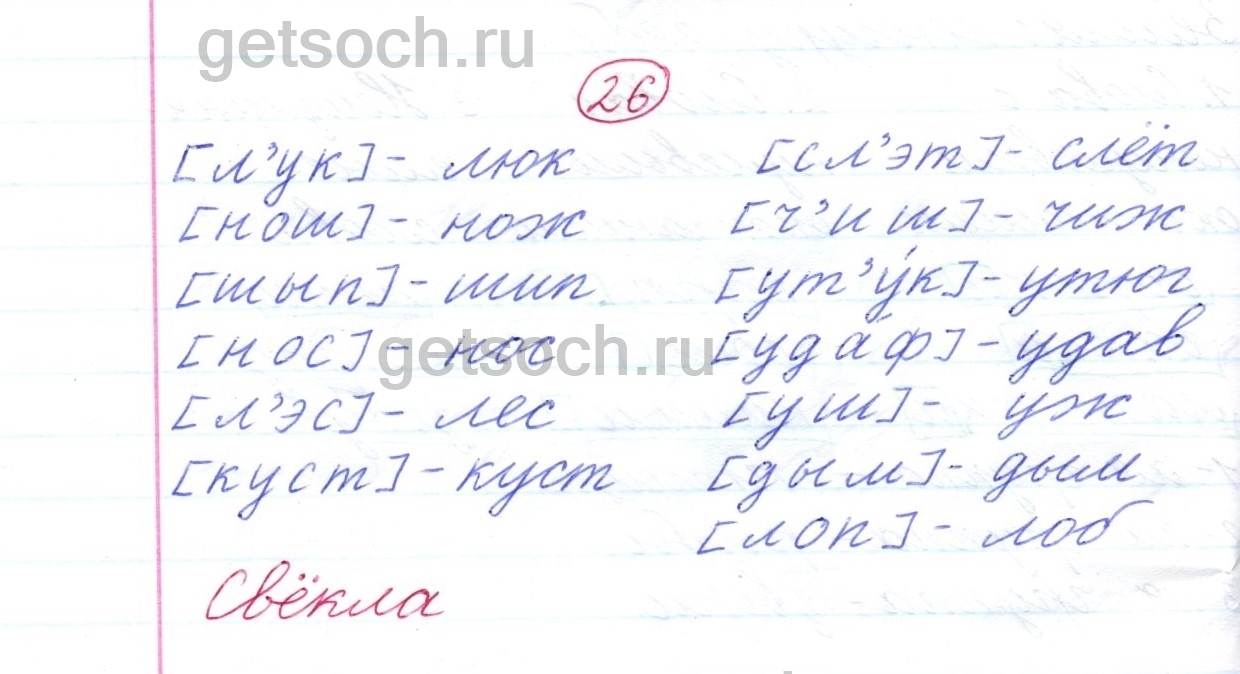 getsoch.ru
26
[л'ук] - люк
[нош] - нож
[шып] - шип
[нос] - нос
[л'эс] - лес
[куст] - куст
Свёкла
[сл'эт] - слёт
[ч'иш] - чиж
[ут'у́к] - утюг
[уда́ф] - удав
[уш] - уж
[дым] - дым
[лоп] - лоб
getsoch.ru